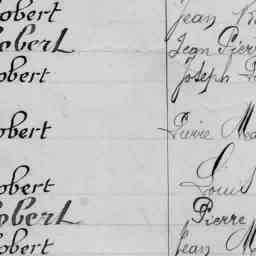 obert Jean
obert Jean Pierre
obert Joseph
obert Pierre
obert Louis
obert Pierre
obert Jean